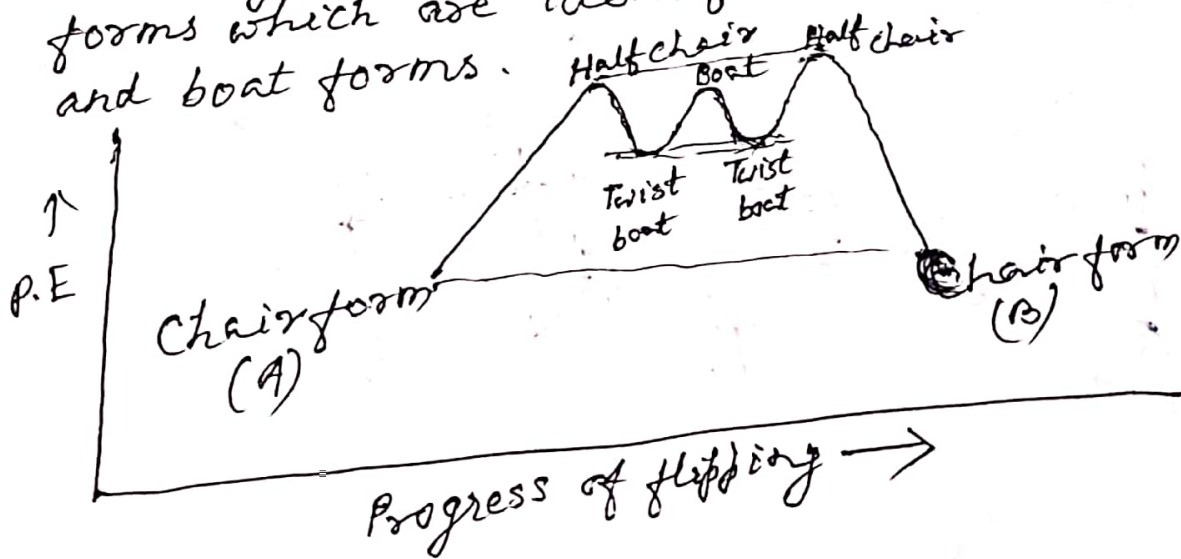 forms which are
and boat forms.
Half chair
Boat
Half chair
Twist
boat
Twist
boat
↑
P.E
Chair form
(A)
Chair form
(B)
Progress of flipping →